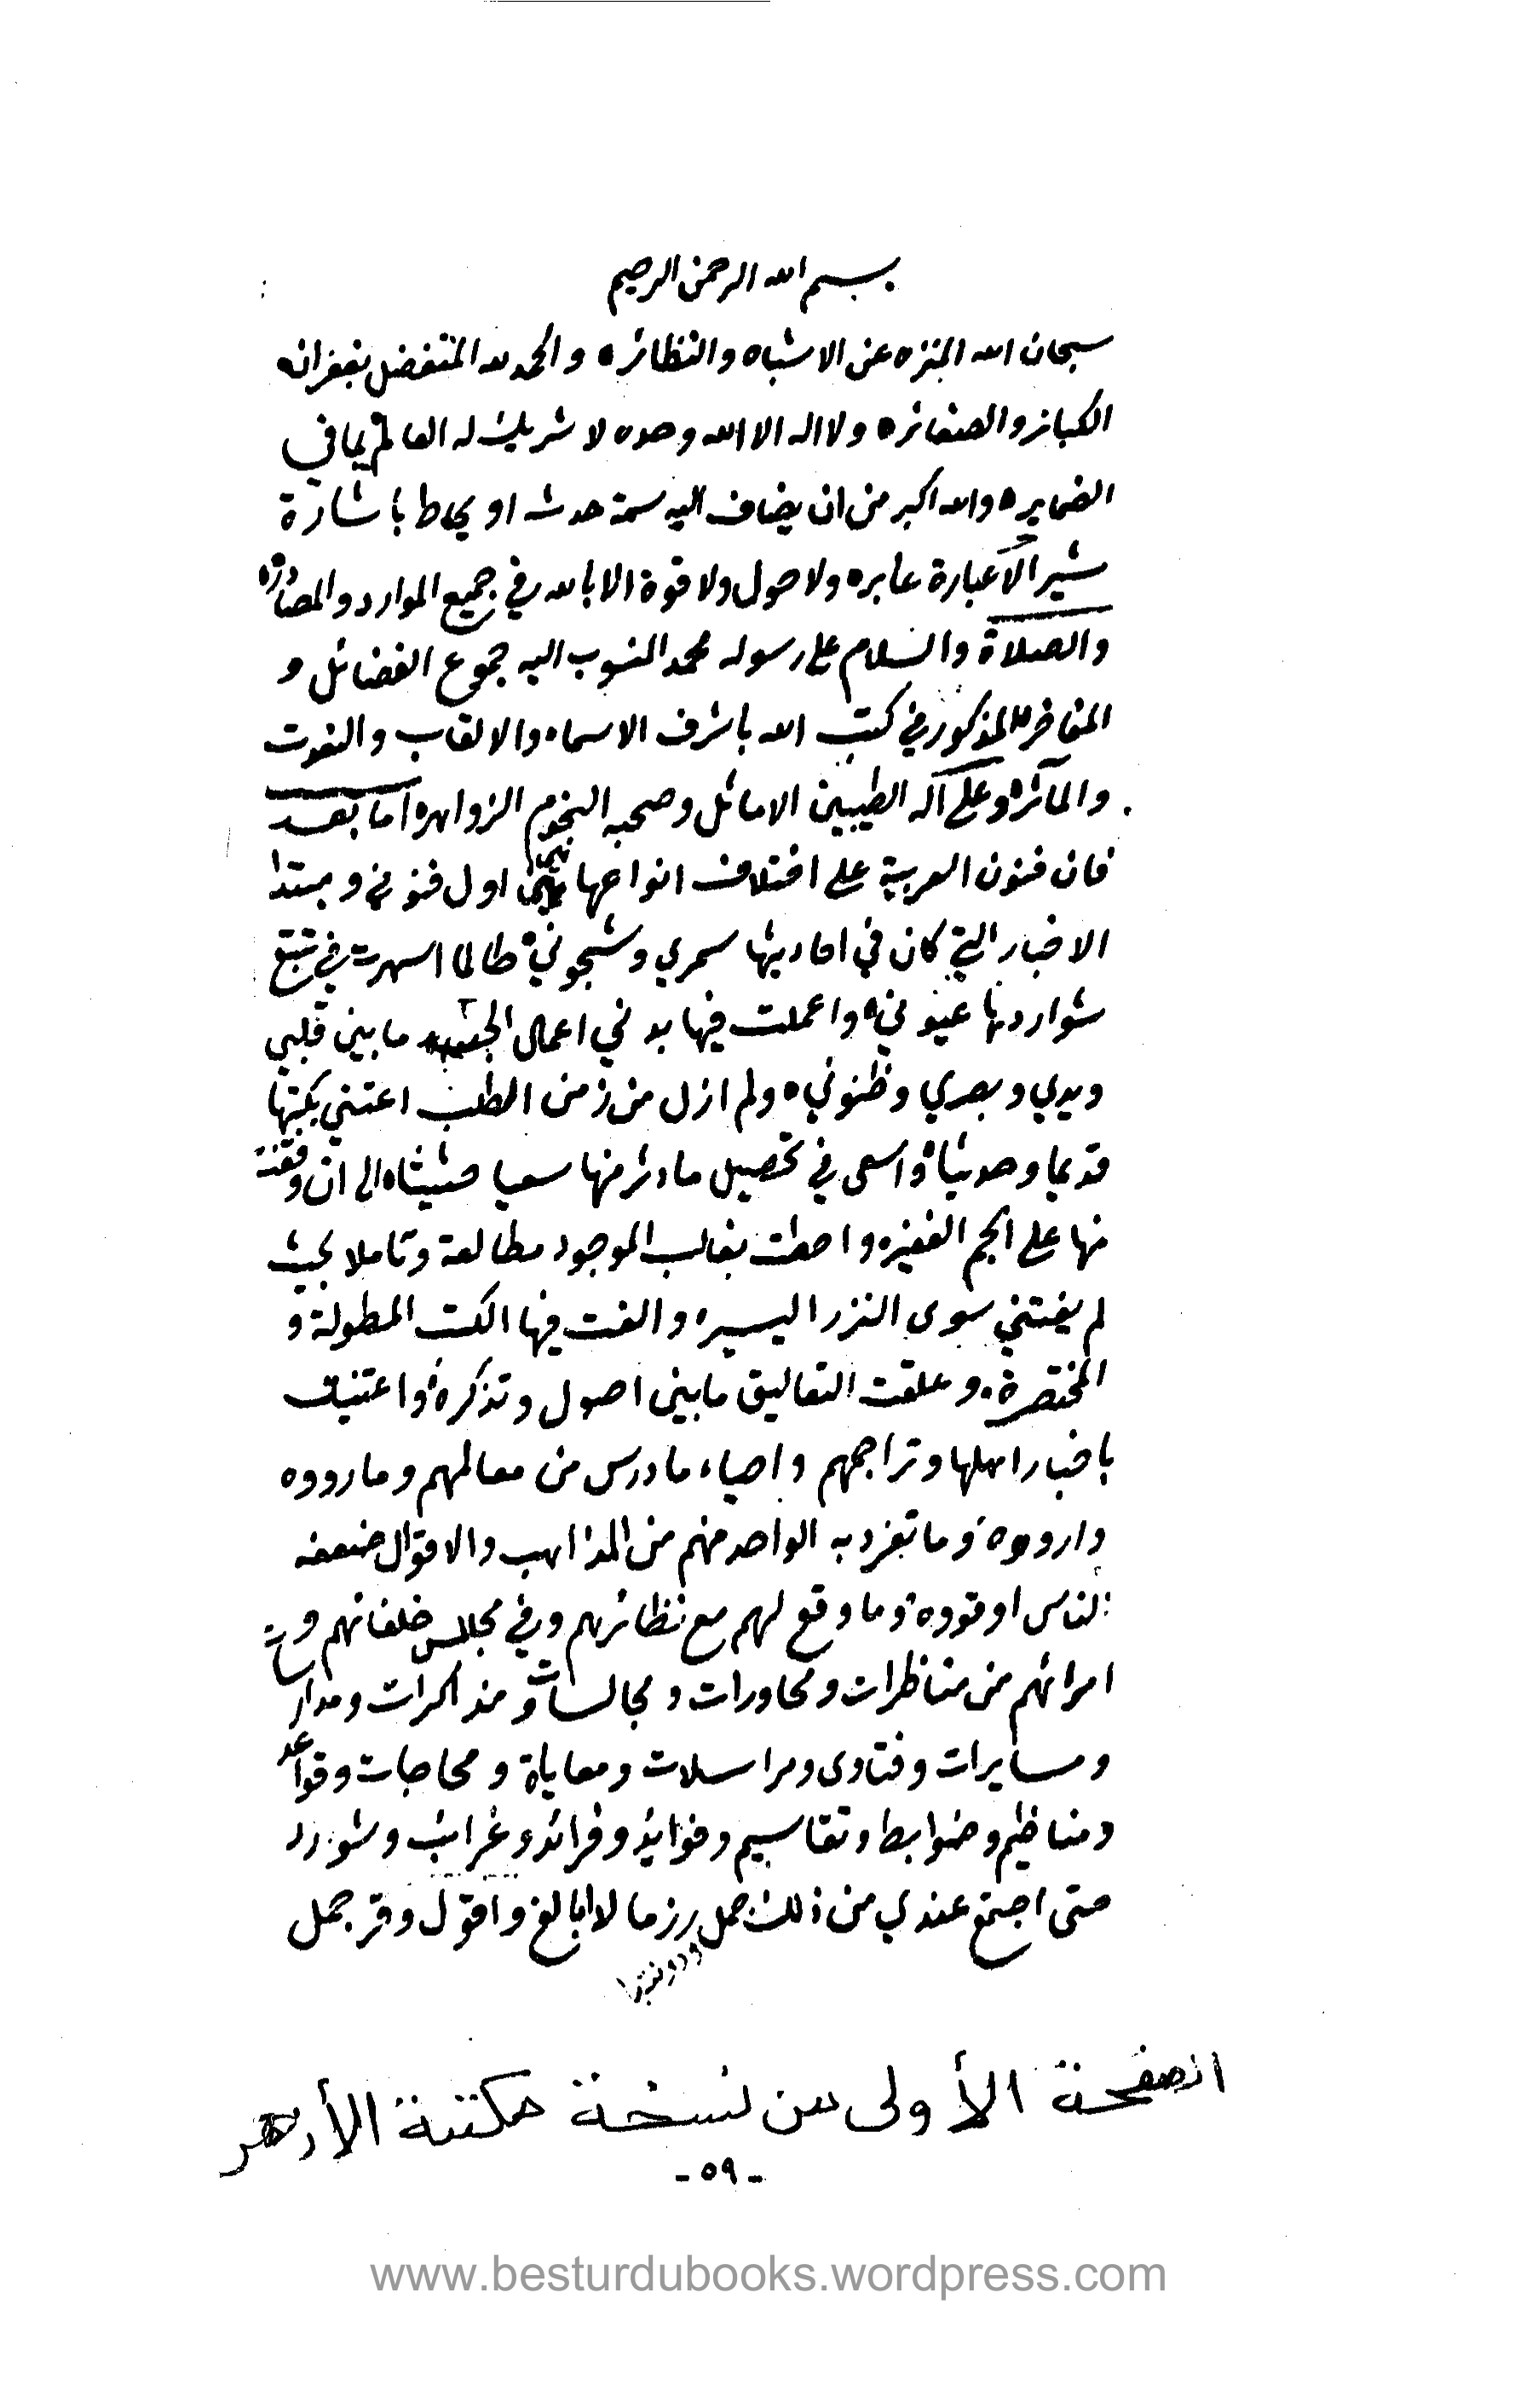 بسم الله الرحمن الرحيم
سبحان الله المنزه عن الاشباه والنظائر ه والحمد لله المتفضل بغفرانه
الكبائر والصغائر ه ولا اله الا الله وحده لا شريك له العالم بما في
الضماير ه والله اكبر من ان يضاف اليه سمة حدث او يحاط باشارة
مشير او عبارة عابر ه ولا حول ولا قوة الا بالله في جميع الموارد والمصادر ه
والصلاة والسلام على رسوله محمد المنسوب اليه جموع الفضائل و
المفاخر المذكور في كتب الله باشرف الاسماء والالقاب والنعوت
والمآثر ه وعلى آله الطيبين الاماثل وصحبه النجوم الزواهر ه اما بعد
فان فنون العربية على اختلاف انواعها هي اول فنوني ومبتدا
الاخبار التي كان في احاديثها سمري وشجوني ه طالما اسهرت في تتبع
شواردها عيوني ه واعملت فيها بدني اعمال المجد ما بين قلبي
ويدي وبصري وظنوني ه ولم ازل من زمن الطلب اعتني بكتبها
قديما وحديثا ه واسعى في تحصيل ما دثر منها سعيا حثيثا ه الى ان وقفت
منها على الجم الغفير ه واحطت بغالب الموجود مطالعة وتاملا بحيث
لم يفتني سوى النزر اليسير ه والفت فيها الكتب المطولة و
المختصرة ه وعلقت التعاليق ما بين اصول وتذكرة ه واعتنيت
باخبار اهلها وتراجمهم واحياء ما درس من معالمهم وما رووه
وارووه ه وما تفرد به الواحد منهم من المذاهب والاقوال ضعفه
الناس او قووه ه وما وقع لهم مع نظائرهم وفي مجالس خلفائهم و
امرائهم من مناظرات ومحاورات ومجالسات ومذاكرات ومدارسات
ومسايرات وفتاوى ومراسلات ومعاياة ومحاجات وقواعد
ومناظيم وضوابط وتقاسيم وفوايد وفرائد وغرائب وشوارد
حتى اجتمع عندي من ذلك جمل ودونتها رزما لا ابالغ واقول وقر جمل
الصفحة الأولى من نسخة مكتبة الأزهر
- ٥٩ -
www.besturdubooks.wordpress.com